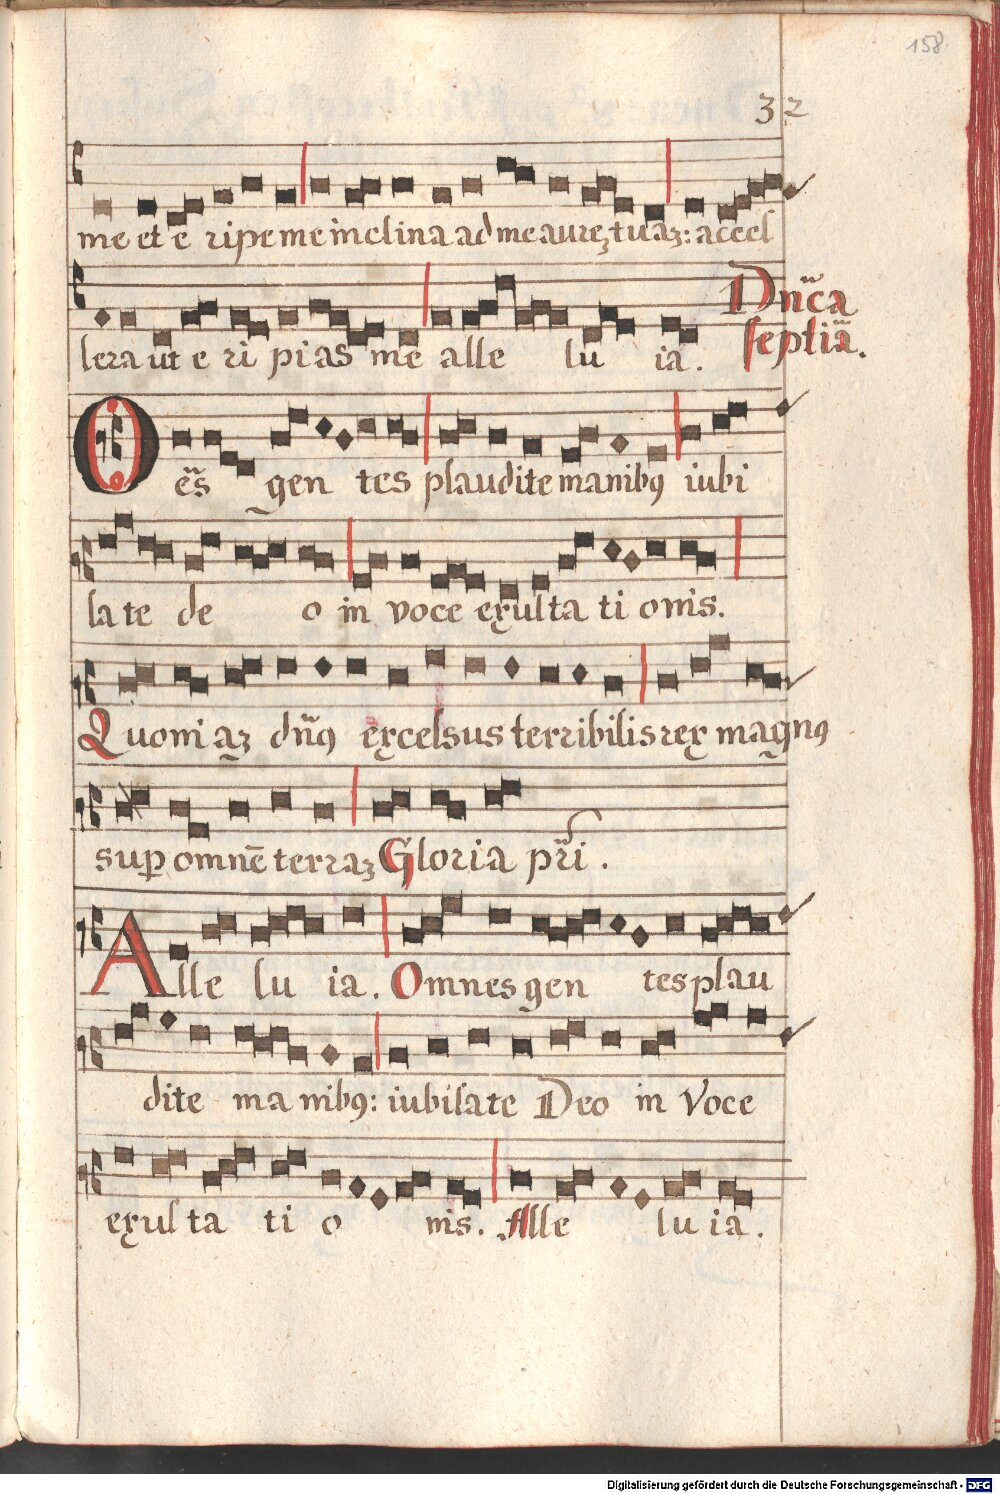 158
32
me et e ripe me inclina ad me aureʒ tuaʒ: accel
lera ut e ri pi as me alle lu ia.
Dn̄ca
septiā.
Oēs gen tes plaudite manibꝯ iubi
la te de o in voce exulta ti onis.
Quoni aʒ dn̄ꝯ excelsus terribilis rex magnꝯ
suꝑ omnē terraʒ Gloria pr̄i.
Alle lu ia. Omnes gen tes plau
dite ma nibꝯ: iubilate Deo in Voce
exul ta ti o nis. Alle lu ia.
Digitalisierung gefördert durch die Deutsche Forschungsgemeinschaft - DFG